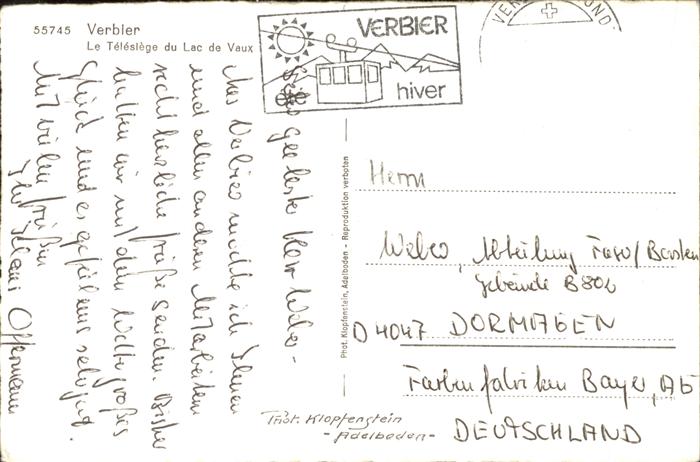 55745 Verbier
Le Télésiège du Lac de Vaux
VERBIER
hiver
Sehr geehrter Herr Weber -
Aus Verbier möchte ich Ihnen
und allen anderen Mitarbeitern
recht herzliche Grüße senden. Bisher
hatten wir mit dem Wetter großes
Glück und es gefällt uns sehr gut.
Mit vielen Grüßen
Ihr Klaus Offermann
Phot. Klopfenstein, Adelboden - Reproduktion verboten
Herrn
Weber, Abteilung Faso/Borsten
Gebäude B 802
D 4047 DORMAGEN
Farbenfabriken Bayer, AG
DEUTSCHLAND
Phot. Klopfenstein
- Adelboden -